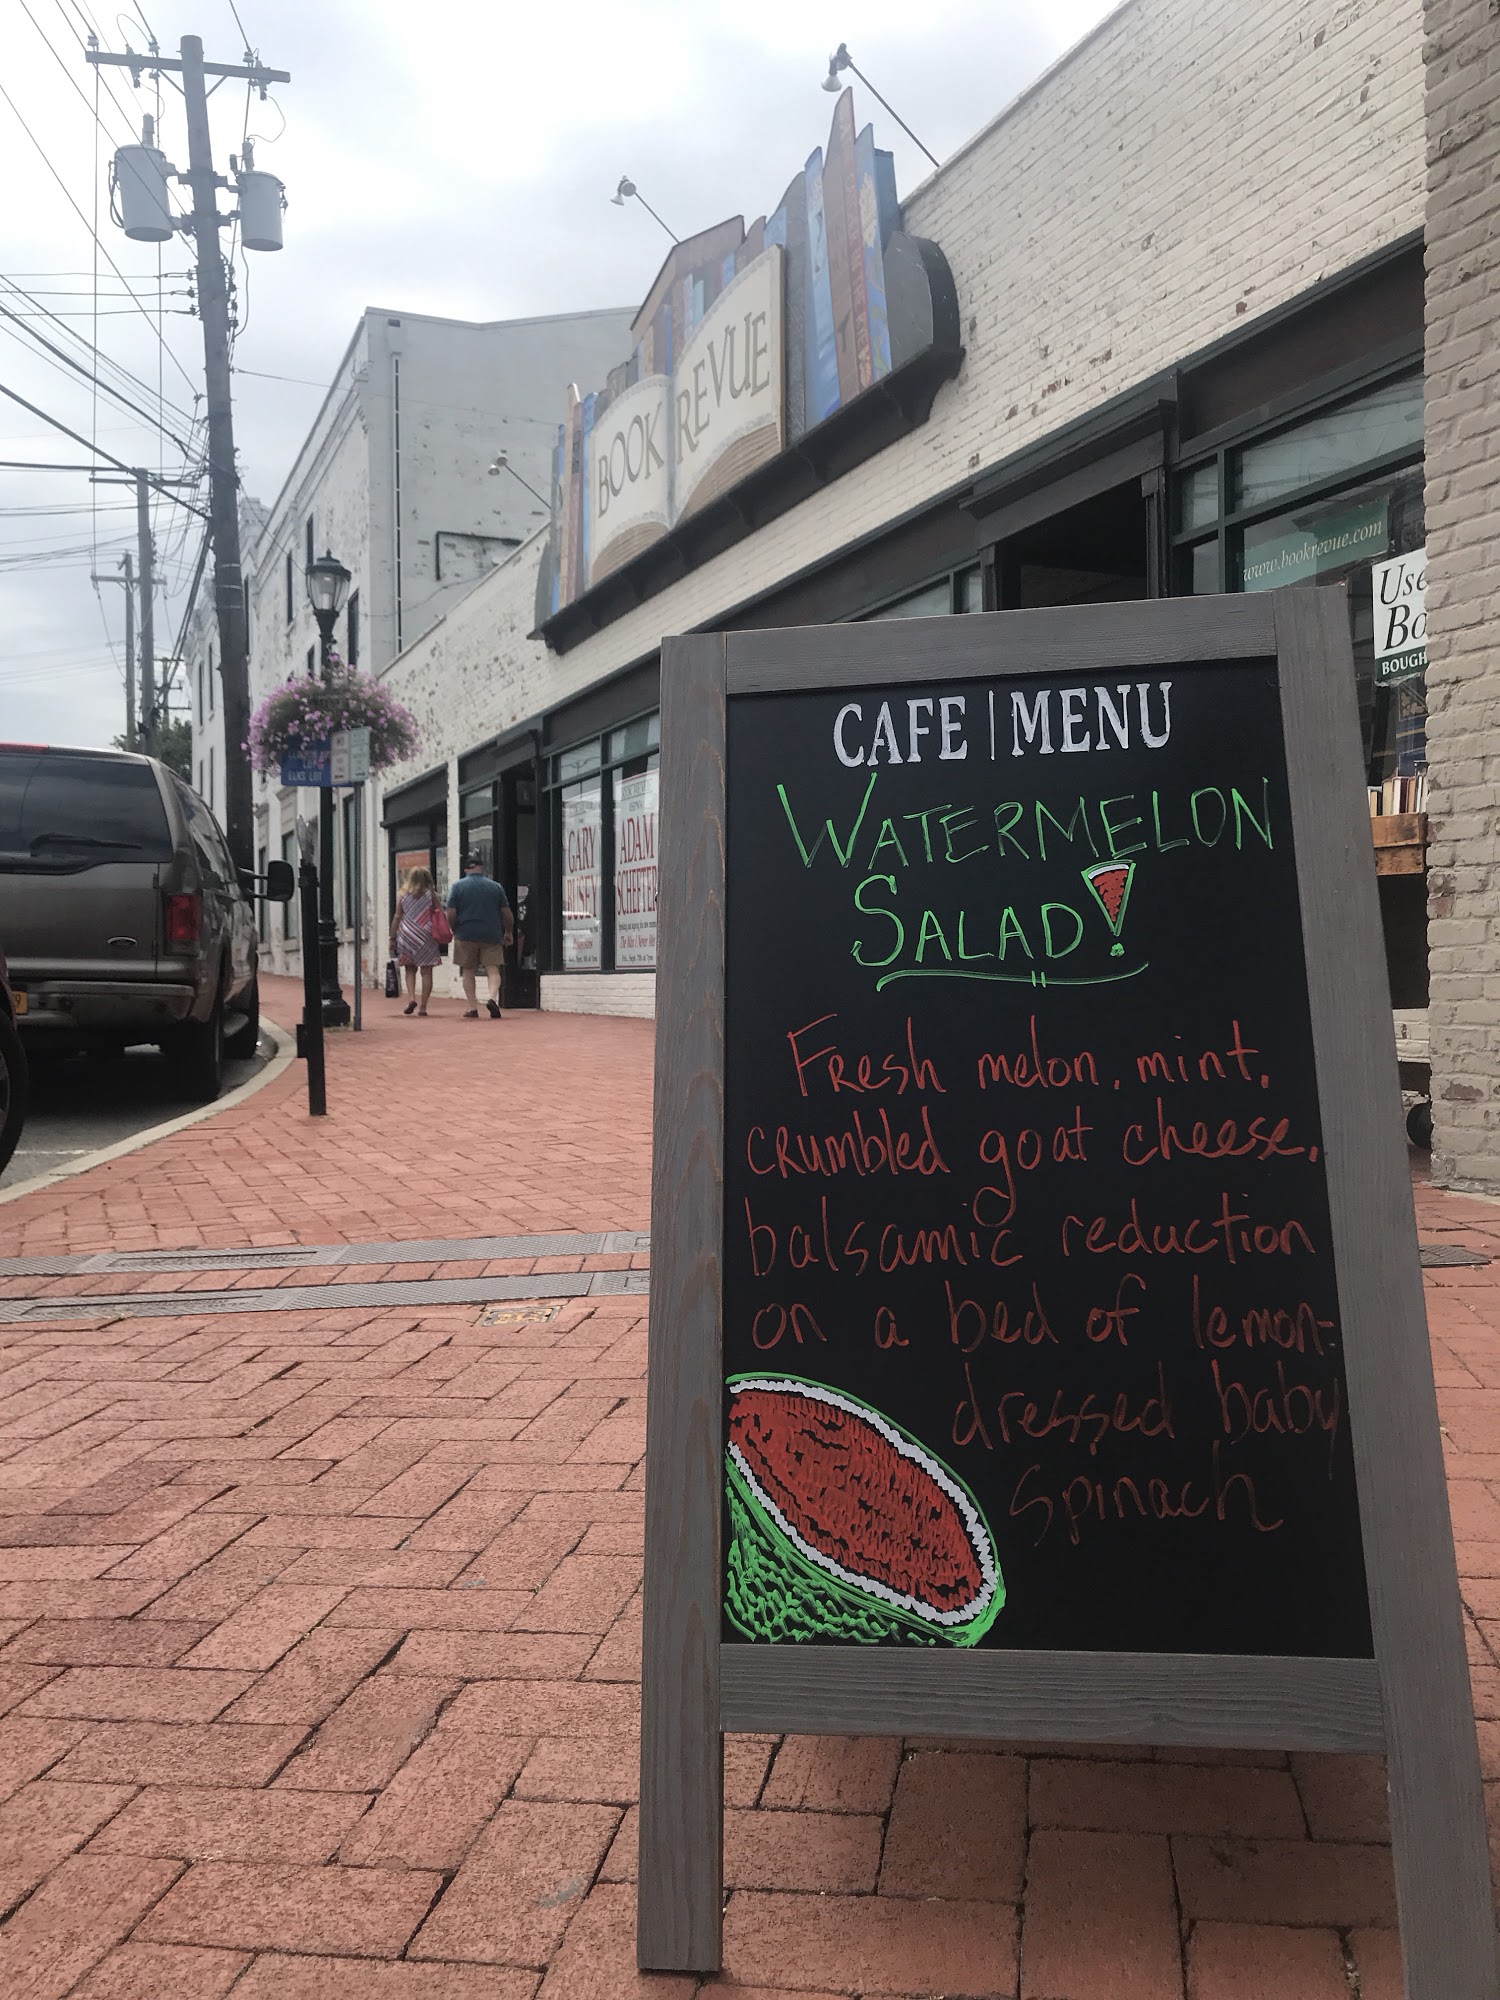 BOOK REVUE
www.bookrevue.com
Use
Bo
BOUGH
ELKS LOT
GARY
BUSEY
ADAM
SCHEFTER
The Man I Never Met
CAFE | MENU
WATERMELON
SALAD!
Fresh melon, mint,
crumbled goat cheese,
balsamic reduction
on a bed of lemon-
dressed baby
spinach